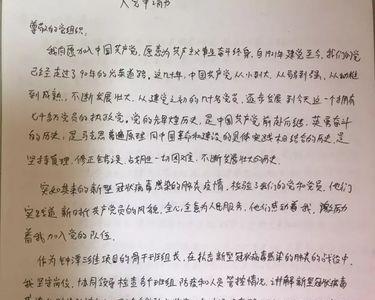 入党申请书
尊敬的党组织:
我自愿加入中国共产党,愿意为共产主义事业奋斗终身,自1921年建党至今,我们的党
已经走过了90年的光荣道路。这几十年,中国共产党,从小到大、从弱到强、从幼稚
到成熟,不断发展壮大。从建党之初的几十名党员,逐步发展到今天这一个拥有
七千多万党员的执政党。党的光辉历史,是中国共产党前赴后继、英勇奋斗
的历史;是马克思普遍原理同中国革命和建设的具体实践相结合的历史,是
坚持真理,修正错误,战胜一切困难,不断发展壮大的历史。
突如其来的新型冠状病毒感染的肺炎疫情,检验了我们的党和党员,他们
实践新时代共产党员的风貌,全心全意为人民服务,他们感动着我,激励
着我加入党的队伍。
作为 项目的骨干班组长,在抗击新型冠状病毒感染的肺炎的战役中,
我坚守岗位,协同领导检查各个班组防疫和人员管控情况,讲解新型冠状病毒